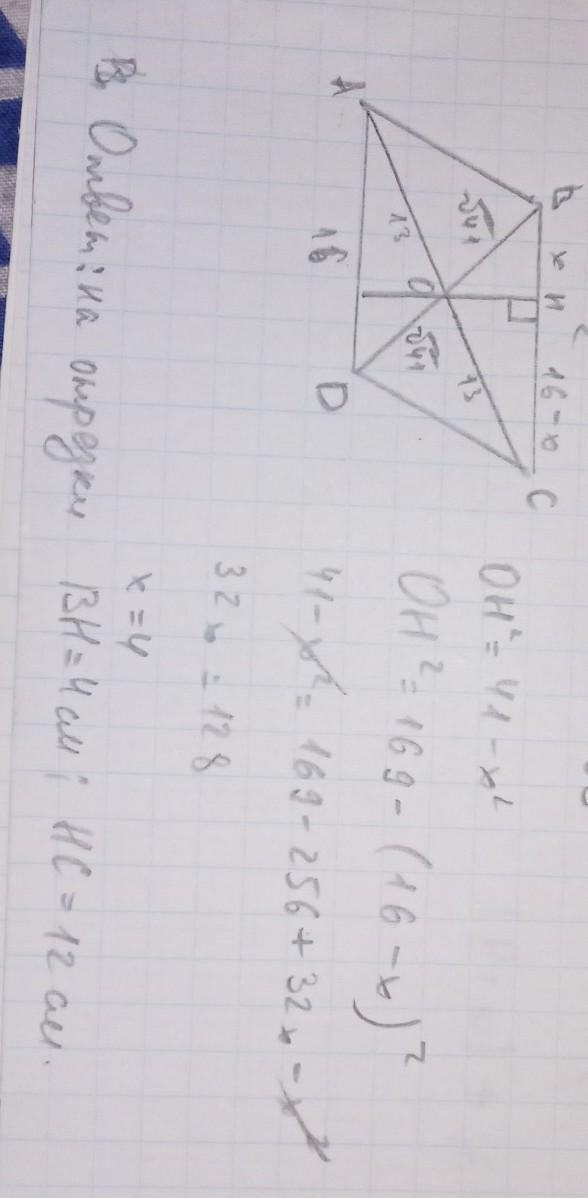 A
B
x
H
16-x
C
√41
13
O
16
√41
13
D
OH² = 41 - x²
OH² = 169 - (16 - x)²
41 - x² = 169 - 256 + 32x - x²
32x = 128
x = 4
Ответ: на отрезки BH = 4 см; HC = 12 см.